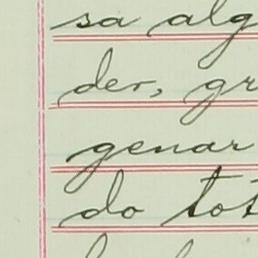 sa alg
der, gr
genar
do tot